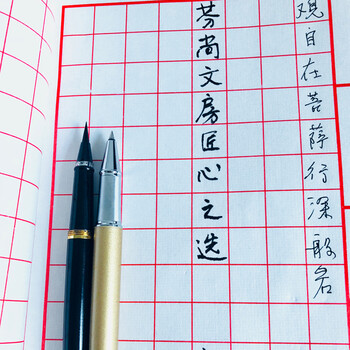 观自在菩萨行深般若
芬尚文房匠心之选